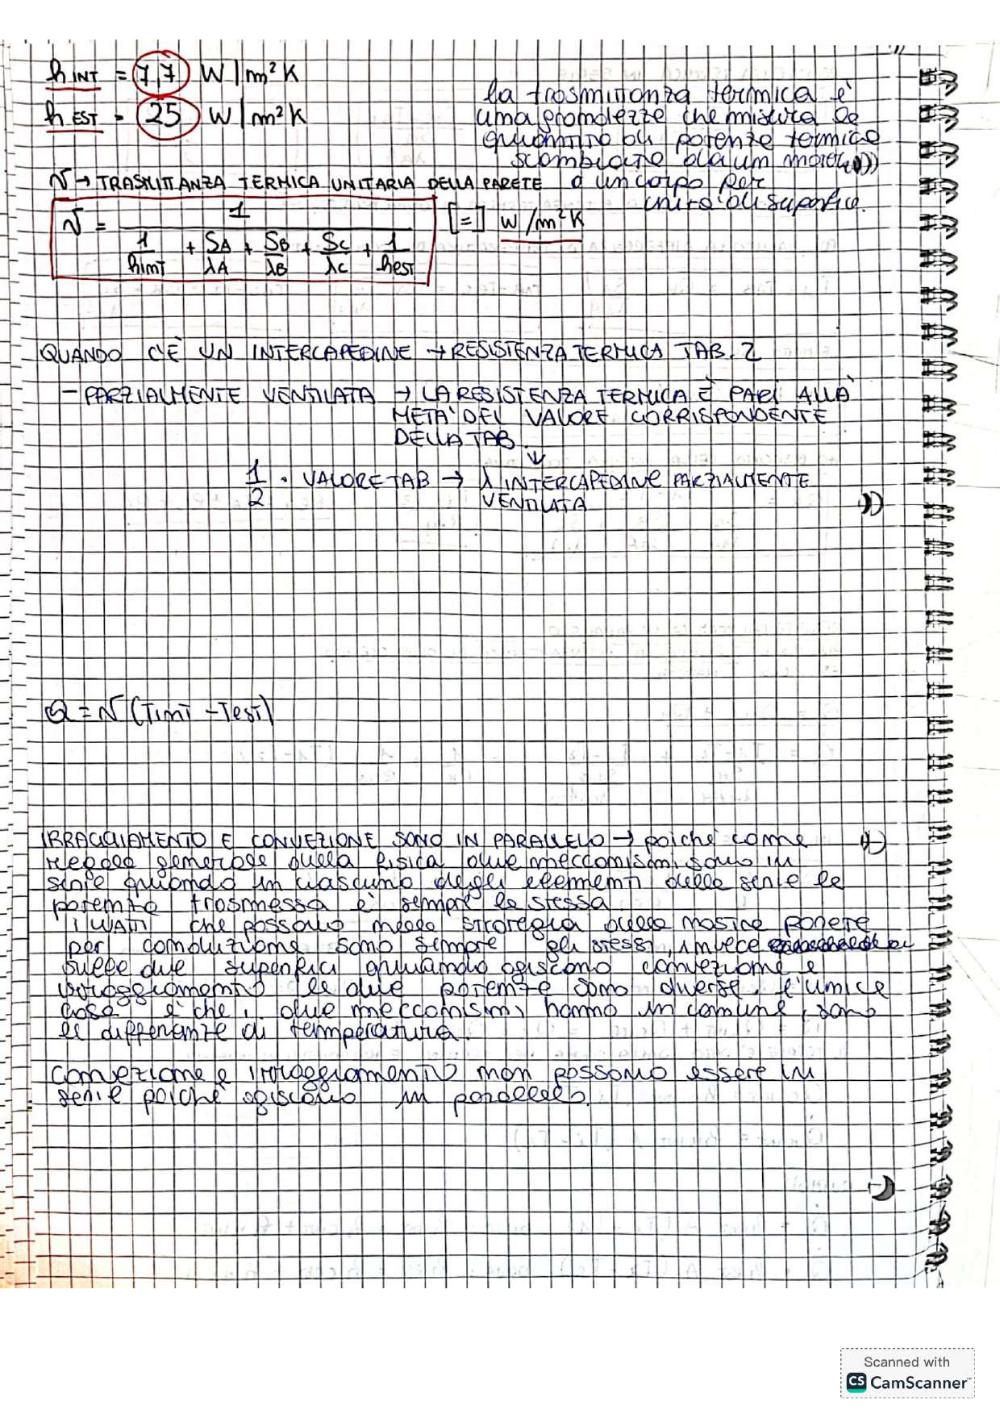 h INT = 7,7 W/m²K
h EST = 25 W/m²K
la trasmittanza termica è
una grandezza che misura la
quantità di potenza termica
scambiata da un
o un corpo per
unità di superfice.
U → TRASMITTANZA TERMICA UNITARIA DELLA PARETE
U = 1 / (1/hint + SA/λA + SB/λB + SC/λC + 1/hest) [=] W/m²K
QUANDO C'È UN INTERCAPEDINE → RESISTENZA TERMICA TAB. 2
- PARZIALMENTE VENTILATA → LA RESISTENZA TERMICA È PARI ALLA
METÀ DEL VALORE CORRISPONDENTE
DELLA TAB.
↓
1/2 · VALORE TAB → λ INTERCAPEDINE PARZIALMENTE
VENTILATA
Q = U (Tint - Test)
IRRAGGIAMENTO E CONVEZIONE SONO IN PARALLELO → poiché come
regola generale della fisica due meccanismi sono in
serie quando in ciascuno degli elementi della serie la
potenza trasmessa è sempre la stessa
I WATT che possono nella stratregia della nostra parete
per conduzione sono sempre gli stessi invece
sulle due superfici quando agiscono convezione e
irraggiamento le due potenze sono diverse l'unica
cosa è che i due meccanismi hanno in comune, sono
le differenze di temperatura.
Convezione e irraggiamento non possono essere in
serie poiché agiscono in parallelo.
Scanned with
CS CamScanner